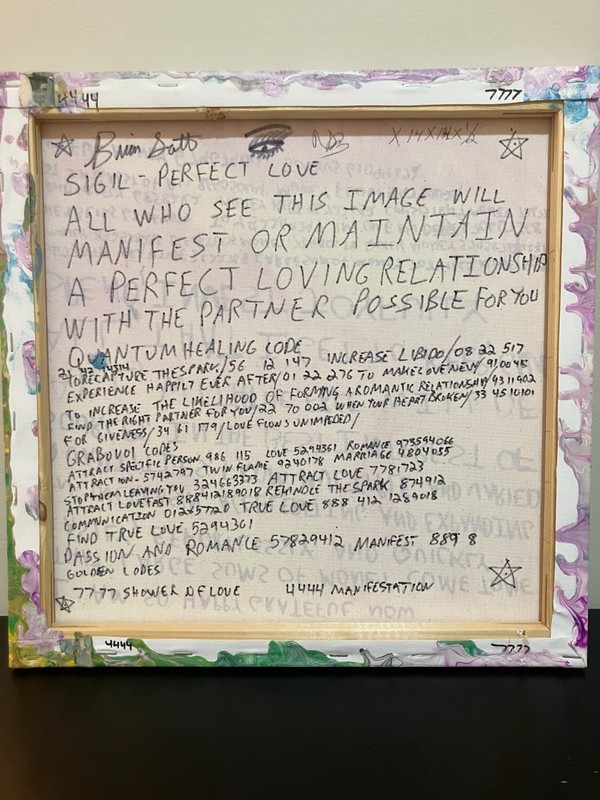 4444 7777
Brian Scott X 14 X 14 X 1/2
SIGIL - PERFECT LOVE
ALL WHO SEE THIS IMAGE WILL
MANIFEST OR MAINTAIN
A PERFECT LOVING RELATIONSHIP
WITH THE PARTNER POSSIBLE FOR YOU
QUANTUM HEALING CODE
21 42 4314
TO RECAPTURE THE SPARK/56 12 147 INCREASE LIBIDO/08 22 517
EXPERIENCE HAPPILY EVER AFTER/01 22 276 TO MAKE LOVE NEW/
TO INCREASE THE LIKELIHOOD OF FORMING A ROMANTIC RELATIONSHIP/93 11 402
FIND THE RIGHT PARTNER FOR YOU/22 70 002 WHEN YOUR HEART BROKEN/33 45 10101
FOR GIVENESS/34 61 179/LOVE FLOWS UNIMPEDED/
GRABOVOI CODES
ATTRACT SPECIFIC PERSON 986 115 LOVE 5294361 ROMANCE 973594066
ATTRACTION - 5742787 TWIN FLAME 9240178 MARRIAGE 4804055
STOP THEM LEAVING YOU 324663373 ATTRACT LOVE 7781723
ATTRACT LOVE FAST 888412189018 REKINDLE THE SPARK 874912
COMMUNICATION TRUE LOVE 888 412 1289018
FIND TRUE LOVE 5294361
PASSION AND ROMANCE 57829412 MANIFEST 889 8
GOLDEN CODES
7777 SHOWER OF LOVE 4444 MANIFESTATION
4444 7777